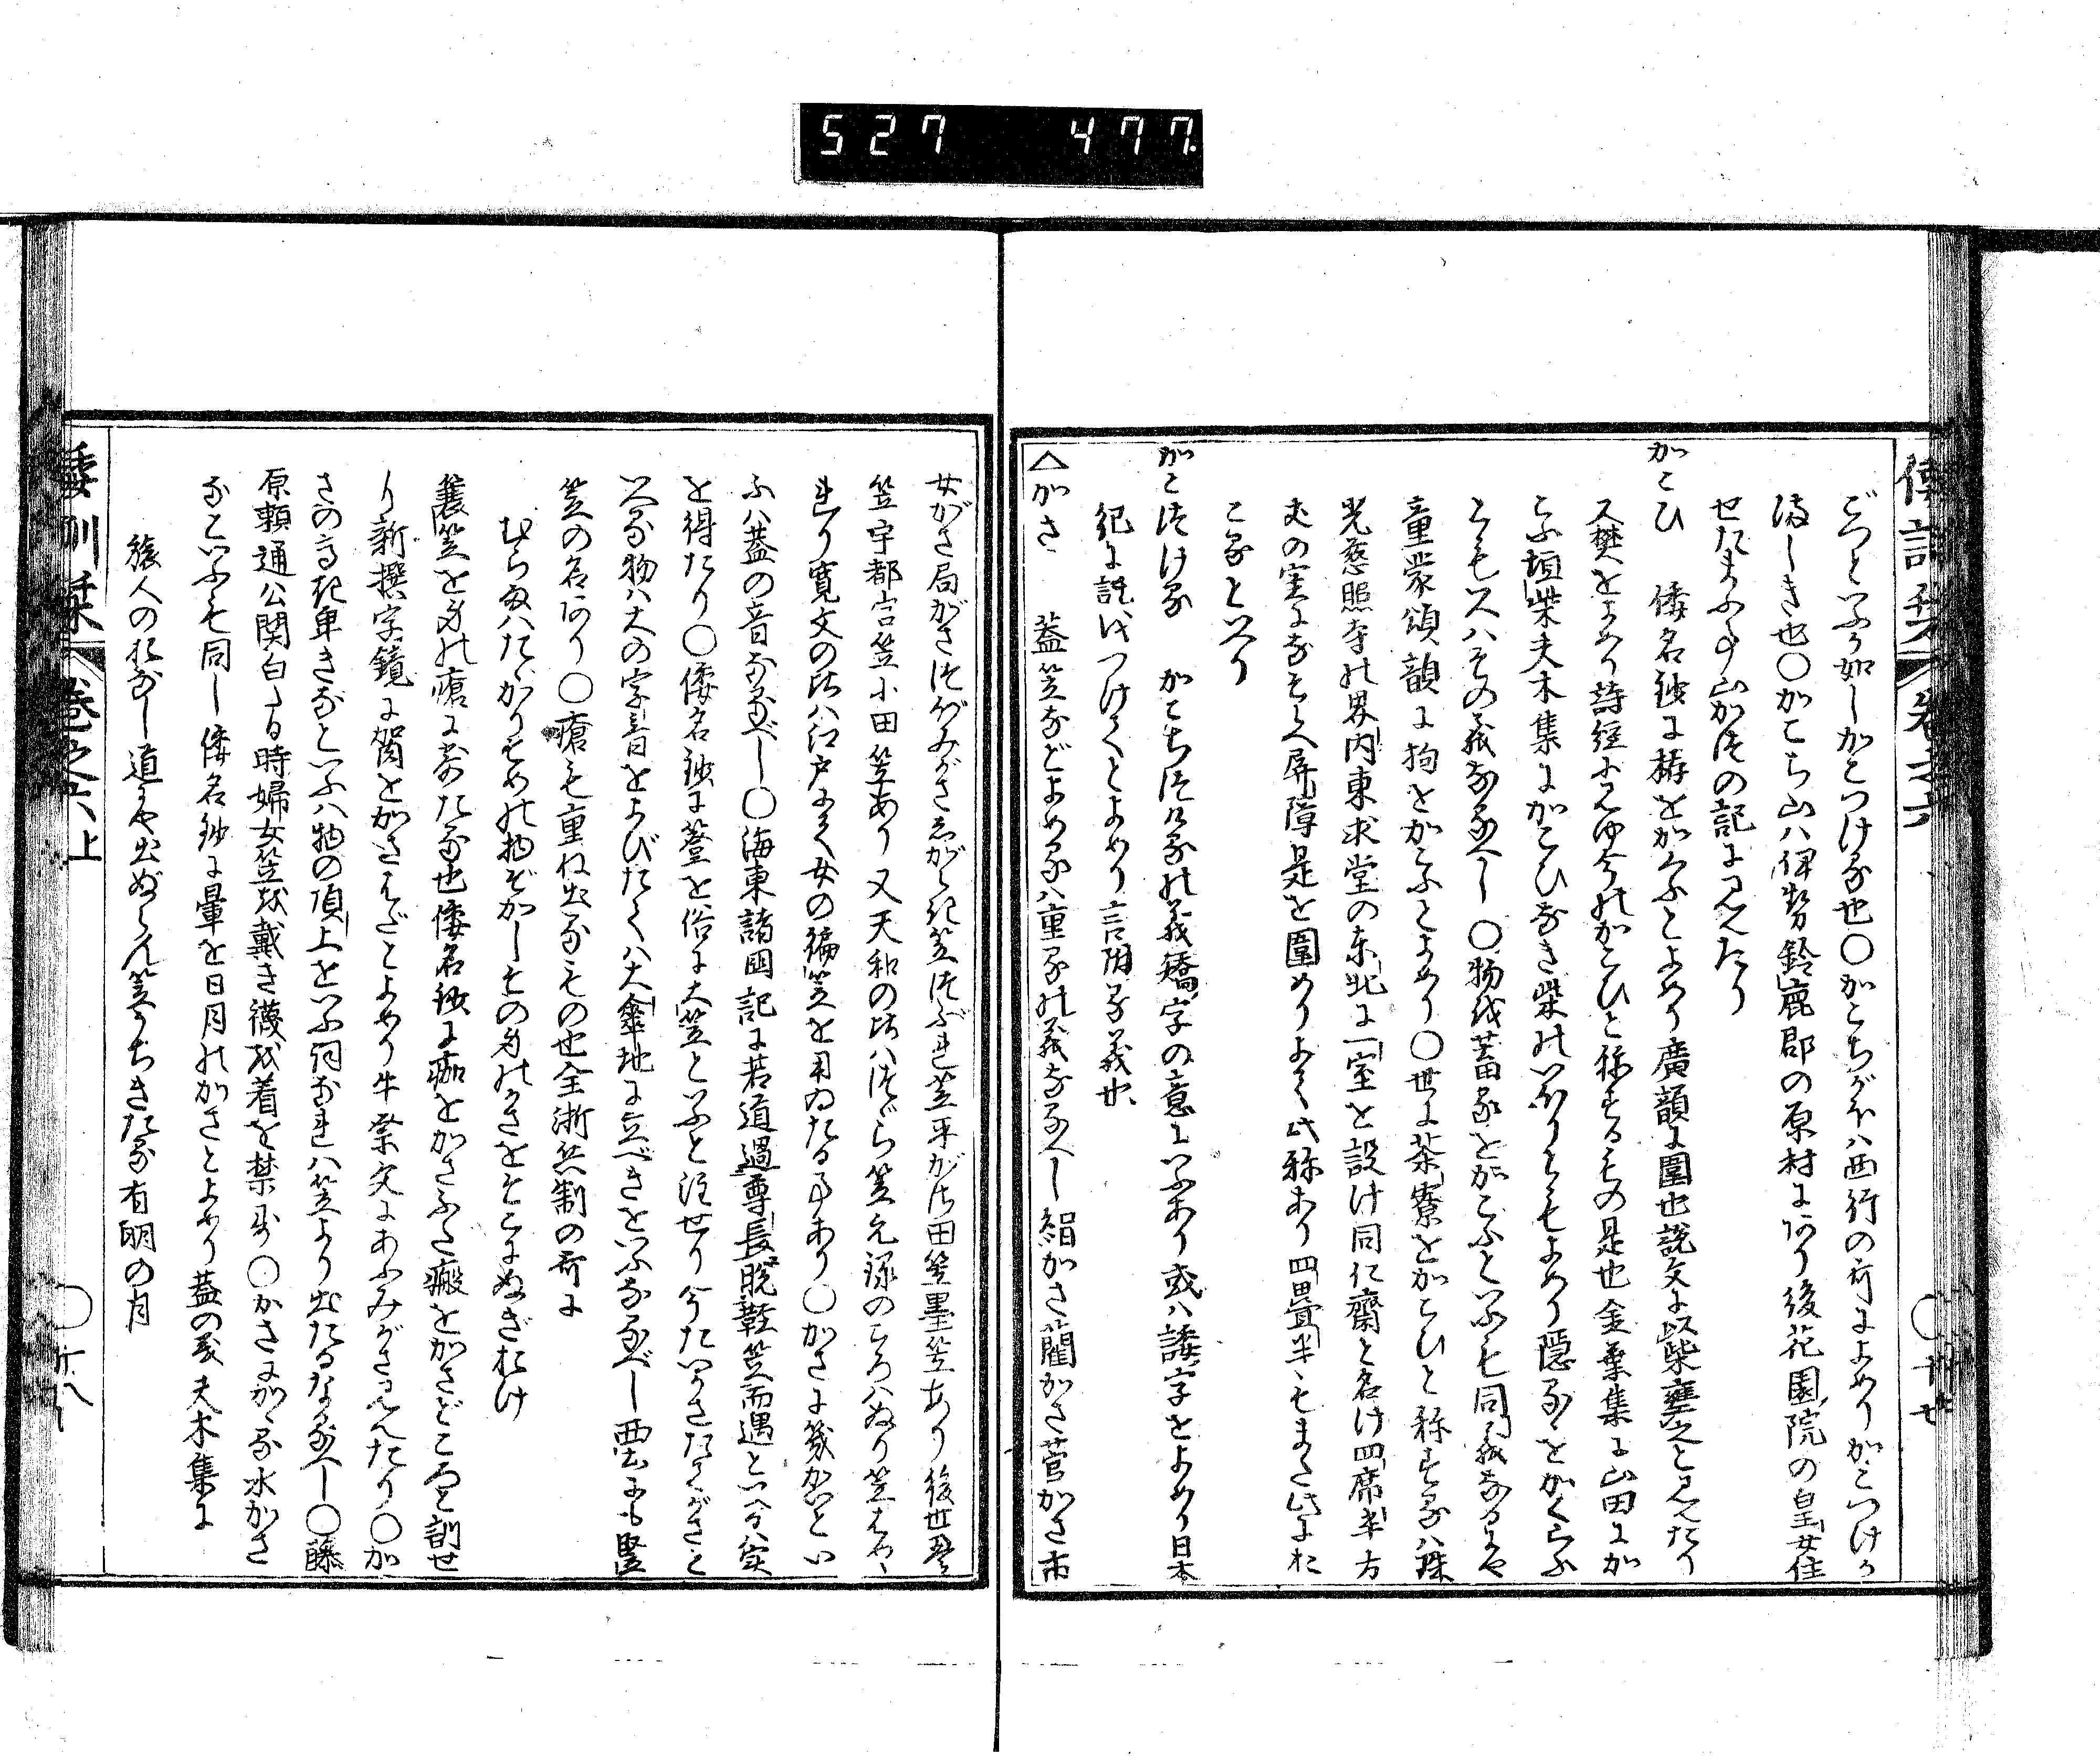 527 477.
倭訓栞 巻之六
ごつといふか如しかこつける也〇かこちがほハ西行の哥によめりかこつけか
ましき也〇かこち山ハ伊勢鈴鹿郡の原村にあり後花園院の皇女住
せたまふ事山かつの記に見えたり
かこひ 倭名鈔に栫をかくふとよめり廣韻に圍也説文に以柴壅之と見えたり
又樊をよめり詩経に見ゆ今のかこひと称するもの是也金葉集に山田にか
こふ垣柴夫木集にかこひなき柴のいほりともよめり隠るゝをかくらふ
ともいへハその義なるべし〇物を蓄るをかこふといふも同義なるにや
童蒙頌韻に拘をかこふとよめり〇世に茶寮をかこひと称するハ珠
光慈照寺の界内東求堂の東北に一室を設け同仁齋と名け四席半方
丈の室になぞらへ屏障是を圍めりよて此称あり四畳半もまた此にお
こるといへり
かこつける かこちつくるの義矯字の意にいふあり或ハ諉字をよめり日本
紀に託をつけてとよめり言附る義也
△かさ 蓋笠などよめるハ重るの義なるへし絹かさ藺かさ菅かさ市
女がさ局がさつぼみがさあがらき笠つぶれ笠平がさ田笠墨笠あり後世
笠宇都宮笠小田笠あり又天和の比ハつゞら笠元禄のころハぬり笠はや
れり寛文の比ハ江戸にて女の編笠を用ゐたる事あり〇かさに簑かいとい
ふハ蓋の音なるべし〇海東諸国記に若道遇尊長脱鞋笠而過といへるハ実
を得たり〇倭名鈔に簦を俗に大笠といふと注せり今たいかさたてがさと
いへる物ハ大の字音をよびたてハ大傘地に立べきをいふなるべし雲にも豎
笠の名あり〇瘡も重ね出るもの也全浙兵制の哥に
むら雨ハたゞかりそめの物ぞかしその身のかさをそこにぬぎおけ
簑笠を身の瘡に寄たる也倭名鈔に痂をかさふた瘢をかさどころと訓せ
り新撰字鏡に胬をかさはだとよめり牛祭文にあふみがさ見えたり〇か
さの高き卑きなといふハ物の頂上をいふ詞なれハ笠より出たるなるべし〇藤
原頼通公関白たる時婦女笠を戴き襪を着を禁す〇かさにかゝる水かさ
なといふも同し倭名鈔に暈を日月のかさとよめり蓋の義夫木集に
旅人のおなし道にや出ぬらん笠うちきたる有明の月
倭訓栞 巻之六上